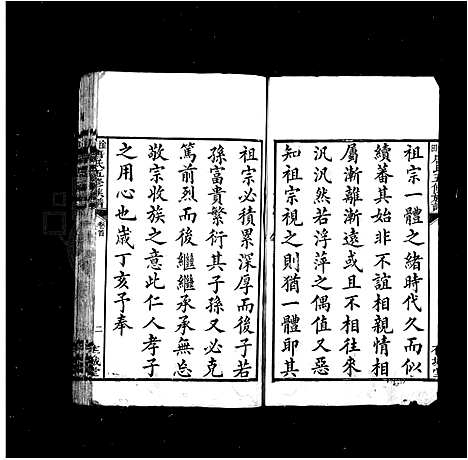 祖宗一體之緒時代久而似
續蕃其始非不相親情相
屬漸離漸遠或且不相往來
汎汎然若浮萍之偶值又惡
知祖宗視之則猶一體耶其
祖宗必積累深厚而後子若
孫富貴繁衍其子孫又必克
篤前烈而後繼繼承承無忘
敬宗收族之意此仁人孝子
之用心也歲丁亥予奉
氏五修族譜
卷首
二